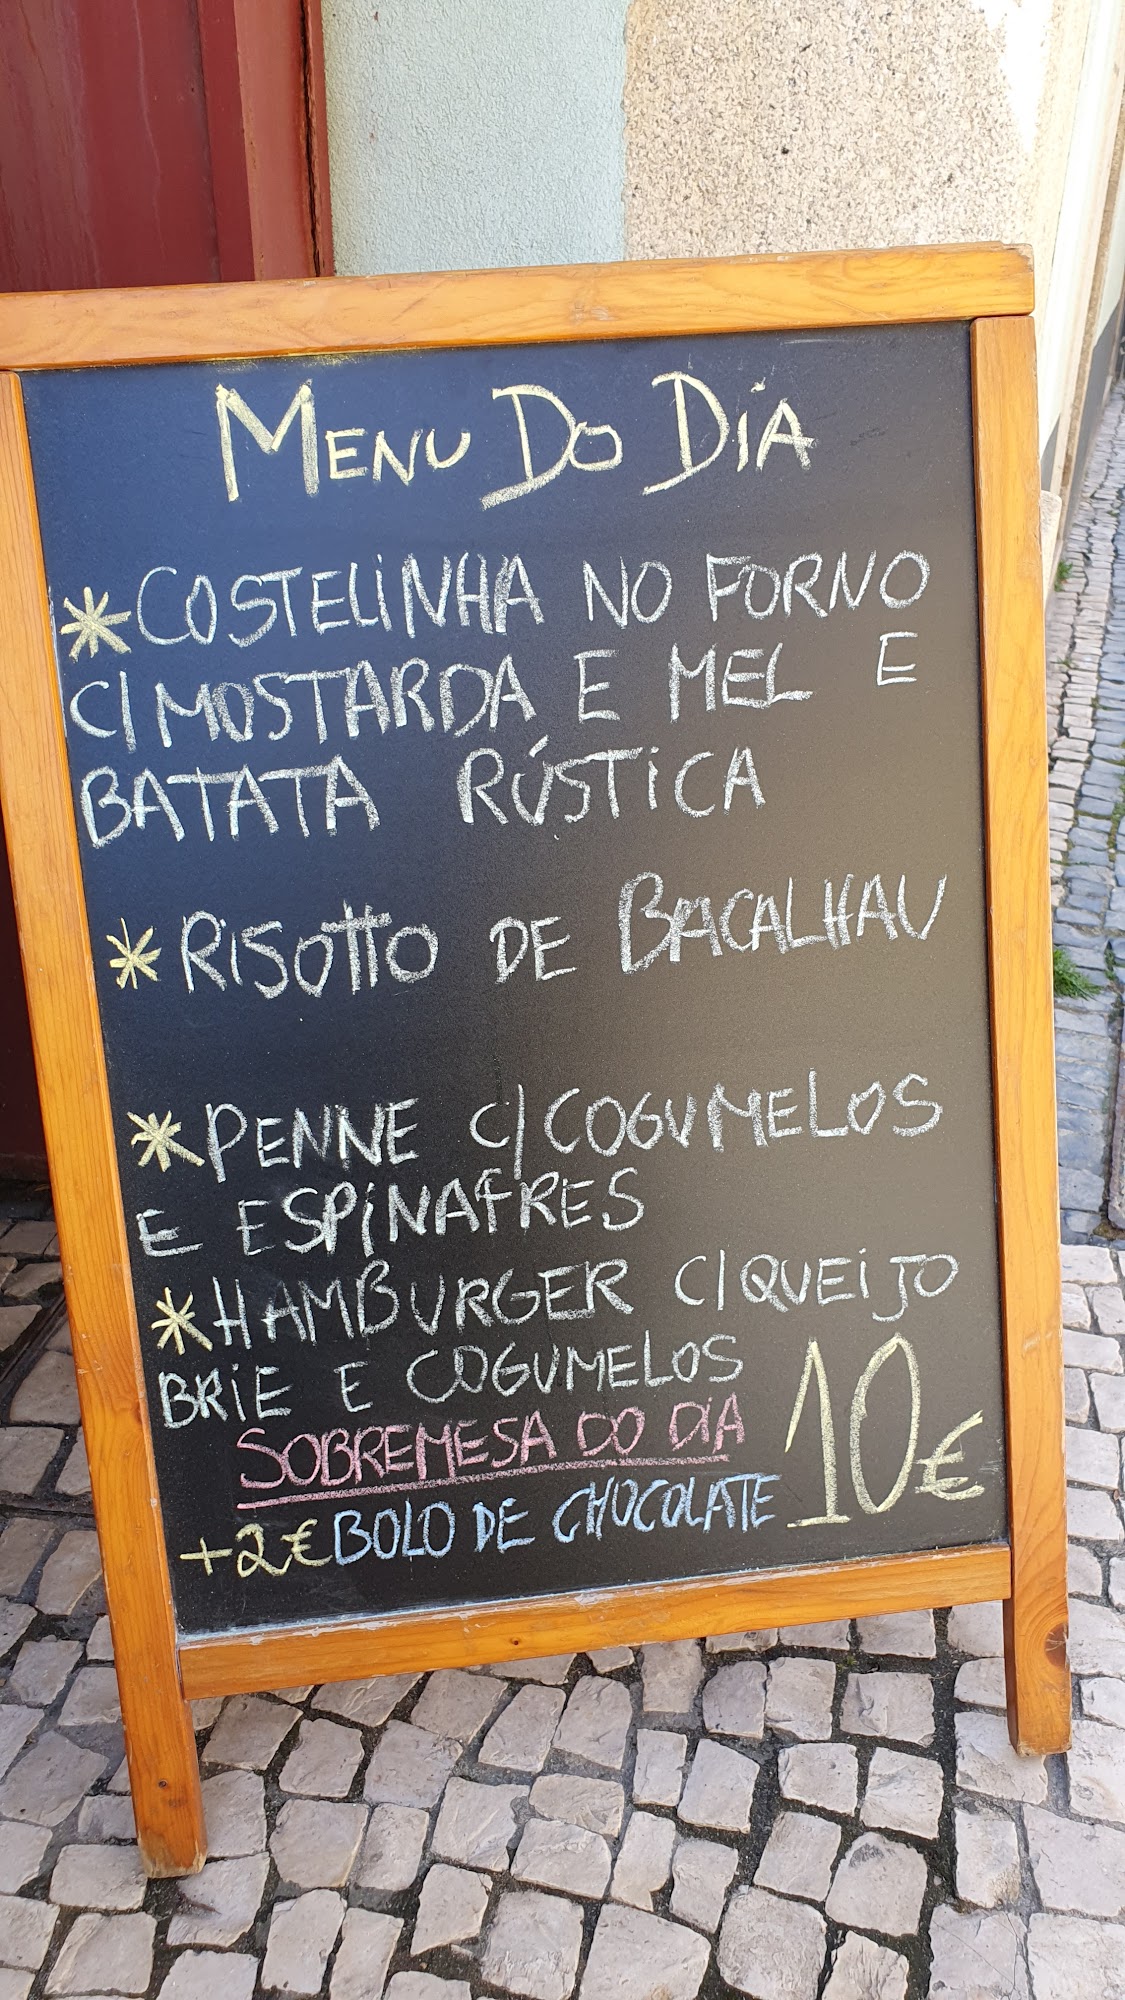 MENU DO DIA
*COSTELINHA NO FORNO
C/ MOSTARDA E MEL E
BATATA RÚSTICA
*RISOTTO DE BACALHAU
*PENNE C/ COGUMELOS
E ESPINAFRES
*HAMBURGER C/ QUEIJO
BRIE E COGUMELOS
SOBREMESA DO DIA 10€
+2€ BOLO DE CHOCOLATE